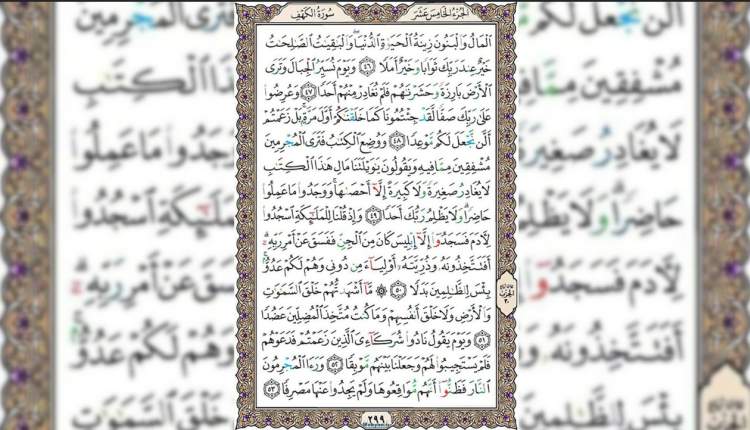 الجزء الخامس عشر
سورة الكهف
ٱلْمَالُ وَٱلْبَنُونَ زِينَةُ ٱلْحَيَوٰةِ ٱلدُّنْيَا ۖ وَٱلْبَٰقِيَٰتُ ٱلصَّٰلِحَٰتُ
خَيْرٌ عِندَ رَبِّكَ ثَوَابًا وَخَيْرٌ أَمَلًا ٤٦ وَيَوْمَ نُسَيِّرُ ٱلْجِبَالَ وَتَرَى
ٱلْأَرْضَ بَارِزَةً وَحَشَرْنَٰهُمْ فَلَمْ نُغَادِرْ مِنْهُمْ أَحَدًا ٤٧ وَعُرِضُوا۟
عَلَىٰ رَبِّكَ صَفًّا لَّقَدْ جِئْتُمُونَا كَمَا خَلَقْنَٰكُمْ أَوَّلَ مَرَّةٍۭ ۚ بَلْ زَعَمْتُمْ
أَلَّن نَّجْعَلَ لَكُم مَّوْعِدًا ٤٨ وَوُضِعَ ٱلْكِتَٰبُ فَتَرَى ٱلْمُجْرِمِينَ
مُشْفِقِينَ مِمَّا فِيهِ وَيَقُولُونَ يَٰوَيْلَتَنَا مَالِ هَٰذَا ٱلْكِتَٰبِ
لَا يُغَادِرُ صَغِيرَةً وَلَا كَبِيرَةً إِلَّآ أَحْصَىٰهَا ۚ وَوَجَدُوا۟ مَا عَمِلُوا۟
حَاضِرًا ۗ وَلَا يَظْلِمُ رَبُّكَ أَحَدًا ٤٩ وَإِذْ قُلْنَا لِلْمَلَٰٓئِكَةِ ٱسْجُدُوا۟
لِـَٔادَمَ فَسَجَدُوٓا۟ إِلَّآ إِبْلِيسَ كَانَ مِنَ ٱلْجِنِّ فَفَسَقَ عَنْ أَمْرِ رَبِّهِۦٓ ۗ
أَفَتَتَّخِذُونَهُۥ وَذُرِّيَّتَهُۥٓ أَوْلِيَآءَ مِن دُونِى وَهُمْ لَكُمْ عَدُوٌّۢ ۚ
بِئْسَ لِلظَّٰلِمِينَ بَدَلًا ٥٠ ۞ مَّآ أَشْهَدتُّهُمْ خَلْقَ ٱلسَّمَٰوَٰتِ
وَٱلْأَرْضِ وَلَا خَلْقَ أَنفُسِهِمْ وَمَا كُنتُ مُتَّخِذَ ٱلْمُضِلِّينَ عَضُدًا
٥١ وَيَوْمَ يَقُولُ نَادُوا۟ شُرَكَآءِىَ ٱلَّذِينَ زَعَمْتُمْ فَدَعَوْهُمْ
فَلَمْ يَسْتَجِيبُوا۟ لَهُمْ وَجَعَلْنَا بَيْنَهُم مَّوْبِقًا ٥٢ وَرَءَا ٱلْمُجْرِمُونَ
ٱلنَّارَ فَظَنُّوٓا۟ أَنَّهُم مُّوَاقِعُوهَا وَلَمْ يَجِدُوا۟ عَنْهَا مَصْرِفًا ٥٣
٢٩٩